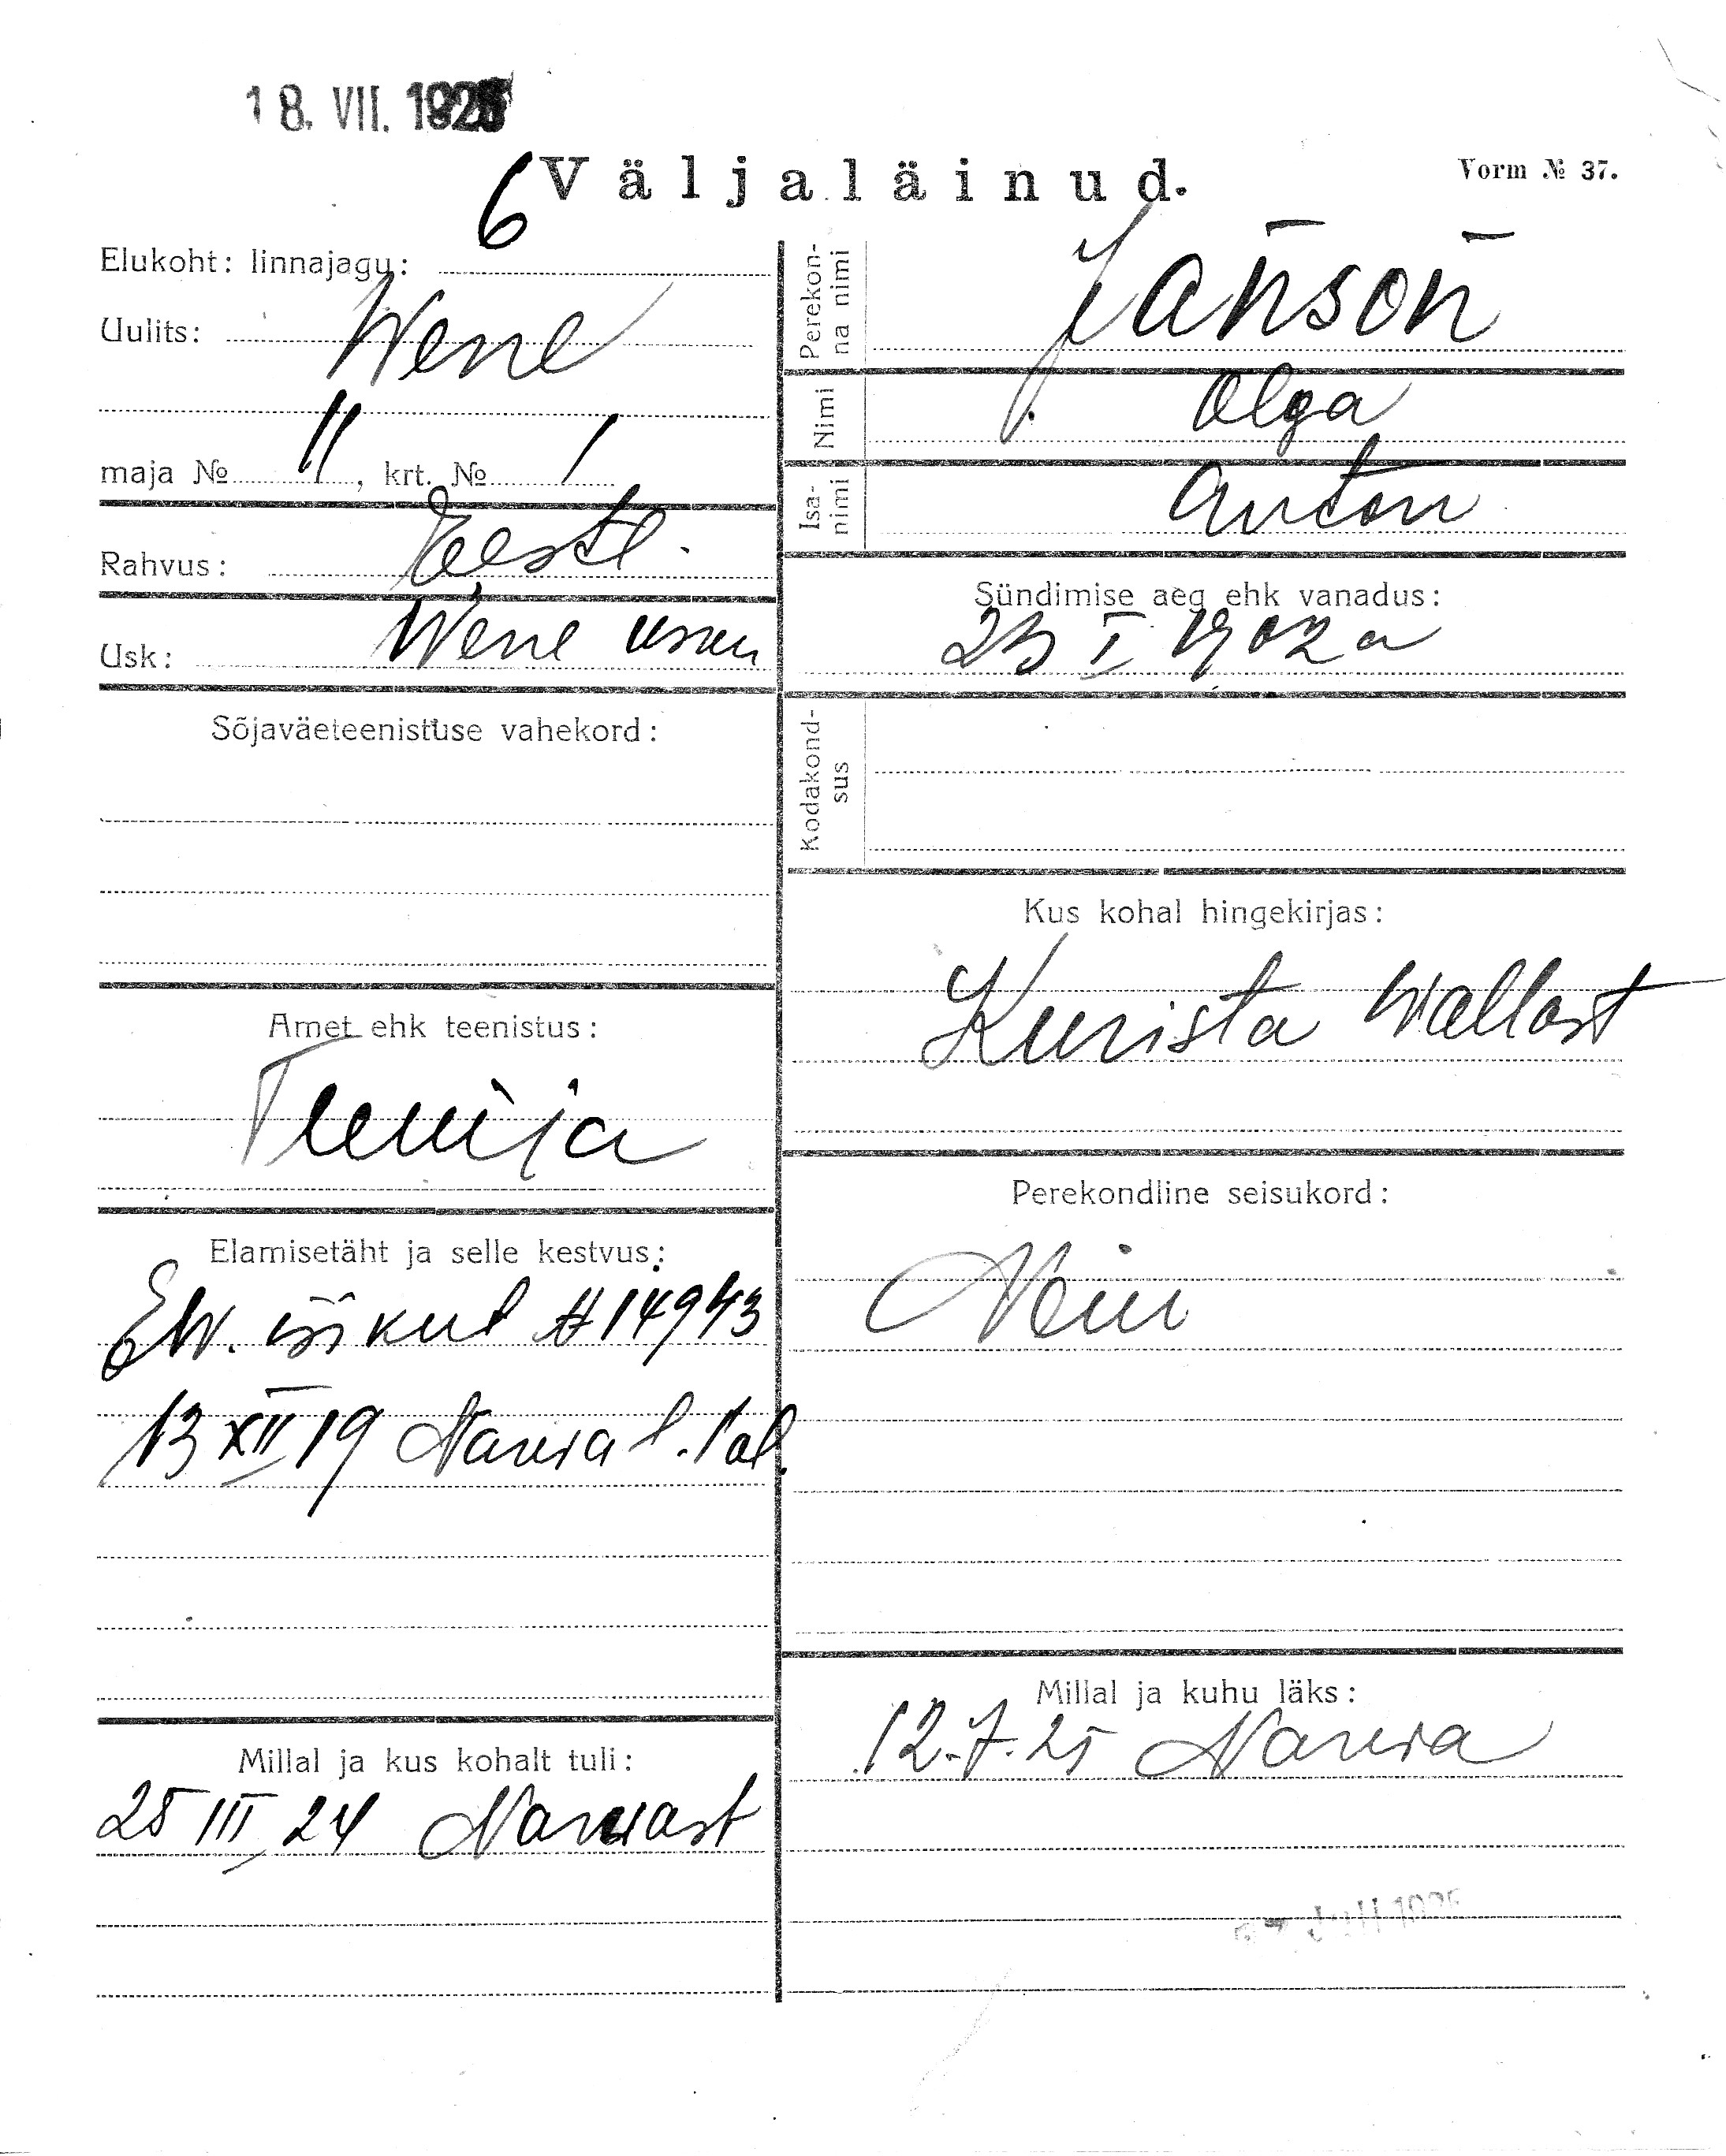 18. VII. 1925
Väljaläinud.
Vorm № 37.
6
Elukoht: linnajagu:
Uulits: Wene
maja № 11, krt. № 1
Rahvus: Eestl.
Usk: Wene usku
Sõjaväeteenistuse vahekord:
Amet ehk teenistus:
Teenija
Elamisetäht ja selle kestvus:
EW. isikut # 14943
13 XII 19 Narwa l. Pol.
Millal ja kus kohalt tuli:
25 III 24 Narwast
Perekonna nimi
Janson
Nimi
Olga
Isanimi
Anton
Sündimise aeg ehk vanadus:
23 I 1902 a
Kodakondsus
Kus kohal hingekirjas:
Kurista wallast
Perekondline seisukord:
Neiu
Millal ja kuhu läks:
12.7.25 Narwa